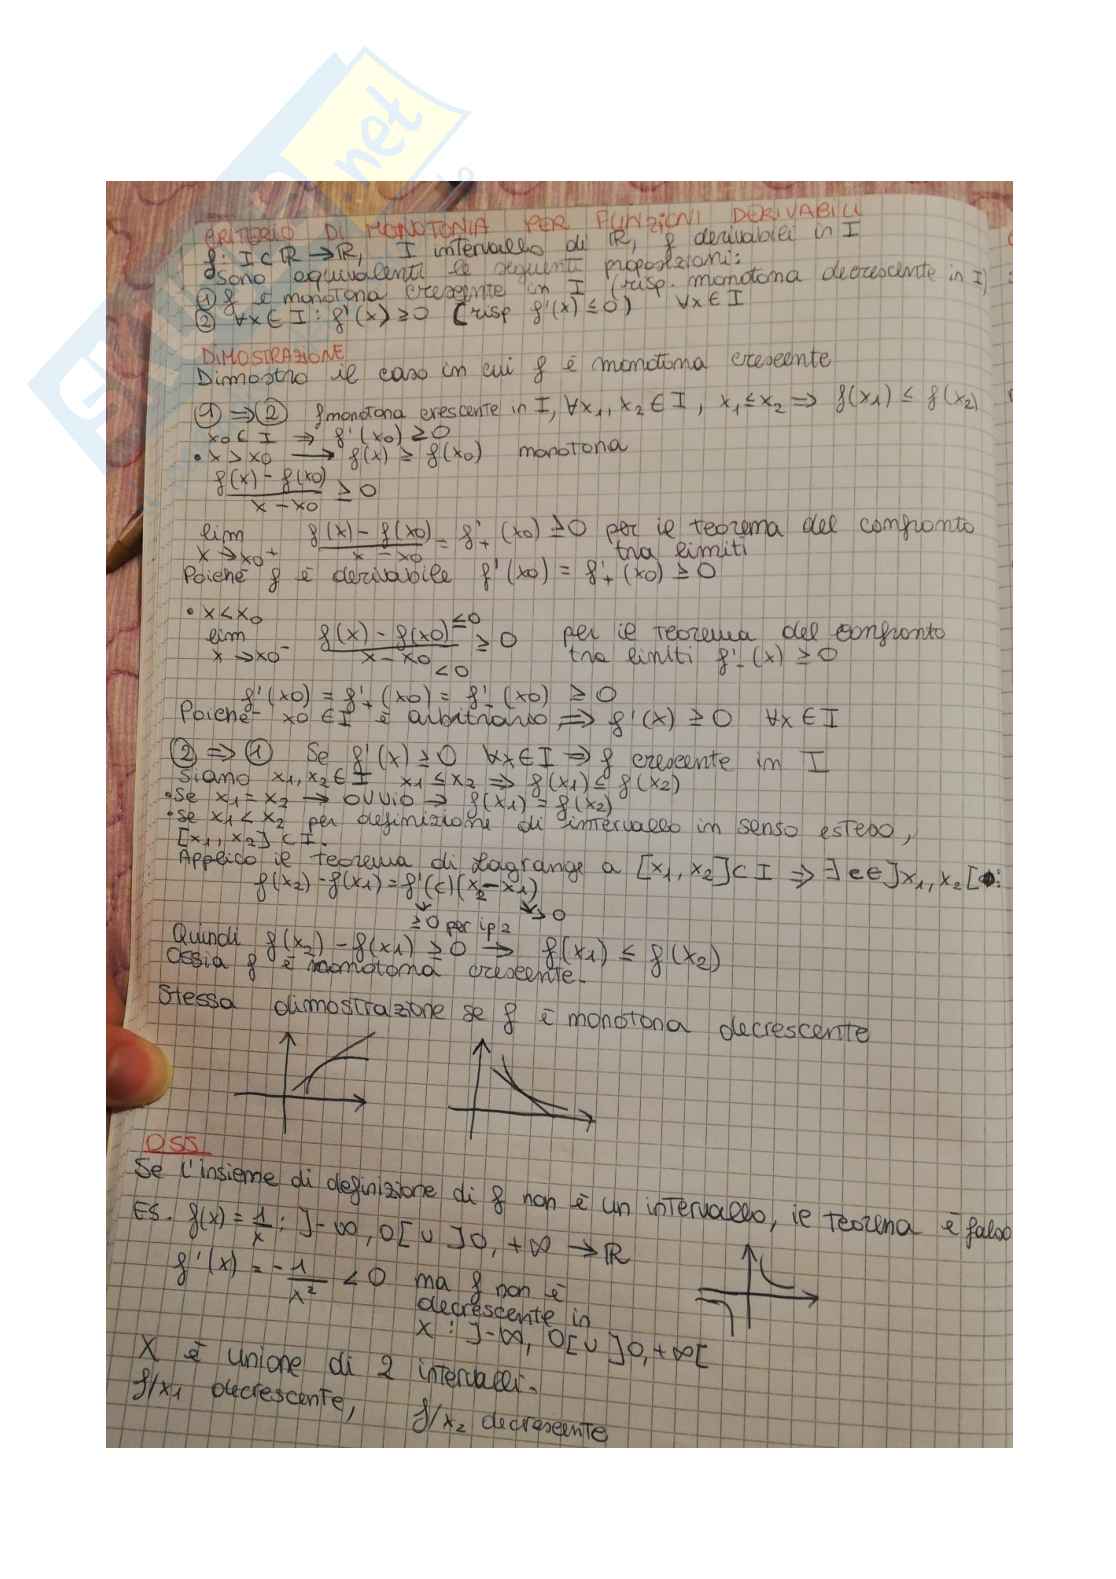 CRITERIO DI MONOTONIA PER FUNZIONI DERIVABILI
f: I⊂ℝ→ℝ, I intervallo di ℝ, f derivabili in I
Sono equivalenti le seguenti proposizioni:
① f è monotona crescente in I (risp. monotona decrescente in I)
② ∀x∈I: f'(x) ≥0 (risp f'(x) ≤0) ∀x∈I
DIMOSTRAZIONE
Dimostro il caso in cui f è monotona crescente
①⇒② f monotona crescente in I, ∀x1, x2∈I, x1≤x2 ⇒ f(x1) ≤ f(x2)
x0⊂I ⇒ f'(x0) ≥0
• x>x0 → f(x) ≥ f(x0) monotona
f(x) - f(x0)
x-x0 ≥0
lim x→x0⁺ f(x) - f(x0) / x-x0 = f'₊(x0) ≥0 per il teorema del confronto
tra limiti
Poiché f è derivabile f'(x0) = f'₊(x0) ≥0
• x<x0
lim x→x0⁻ f(x) - f(x0) ≤0 / x-x0 <0 ≥0 per il teorema del confronto
tra limiti f'₋(x) ≥0
f'(x0) = f'₊(x0) = f'₋(x0) ≥0
Poiché x0∈I è arbitrario ⇒ f'(x) ≥0 ∀x∈I
②⇒① Se f'(x) ≥0 ∀x∈I ⇒ f crescente in I
Siano x1, x2∈I x1≤x2 ⇒ f(x1) ≤ f(x2)
• Se x1=x2 → ovvio → f(x1) = f(x2)
• Se x1<x2 per definizione di intervallo in senso esteso,
[x1, x2]⊂I.
Applico il teorema di Lagrange a [x1, x2]⊂I ⇒ ∃c∈]x1, x2[:
f(x2) - f(x1) = f'(c)(x2-x1)
≥0 per ip 2 >0
Quindi f(x2) - f(x1) ≥0 → f(x1) ≤ f(x2)
Ossia f è monotona crescente.
Stessa dimostrazione se f è monotona decrescente
OSS.
Se l'insieme di definizione di f non è un intervallo, il teorema è falso
ES. f(x) = 1/x : ]-∞,0[ ∪ ]0,+∞ → ℝ
f'(x) = -1/x² <0 ma f non è
decrescente in
X: ]-∞, 0[ ∪ ]0,+∞[
X è unione di 2 intervalli.
f/x1 decrescente, f/x2 decrescente